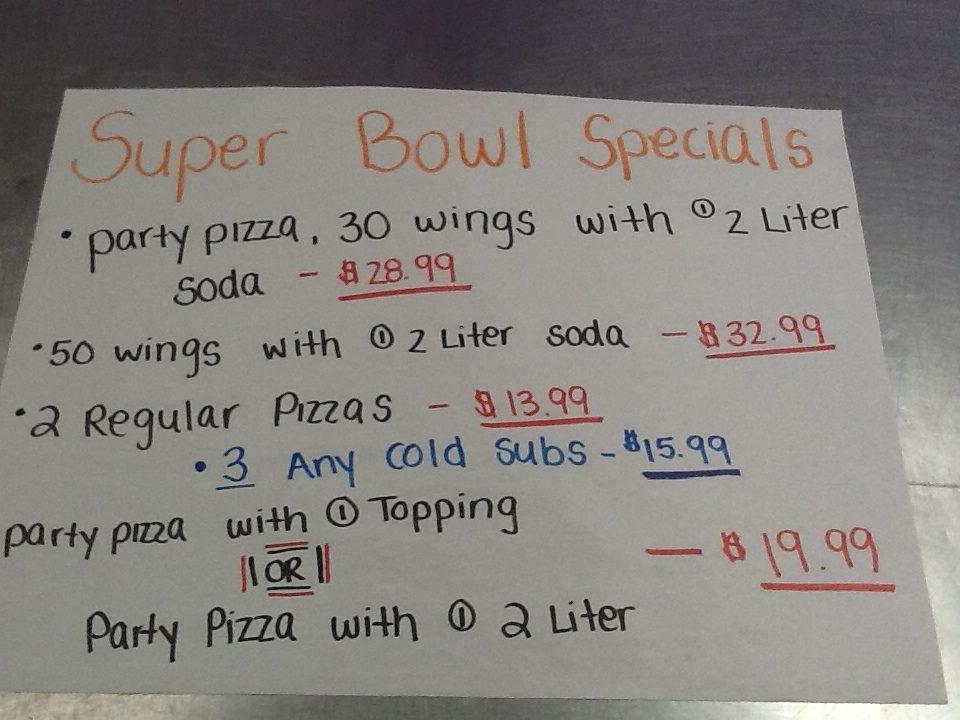 Super Bowl Specials
• party pizza, 30 wings with ① 2 Liter
soda - $28.99
• 50 wings with ① 2 Liter soda - $32.99
• 2 Regular Pizzas - $13.99
• 3 Any cold subs - $15.99
party pizza with ① Topping
||OR|| — $19.99
Party Pizza with ① 2 Liter